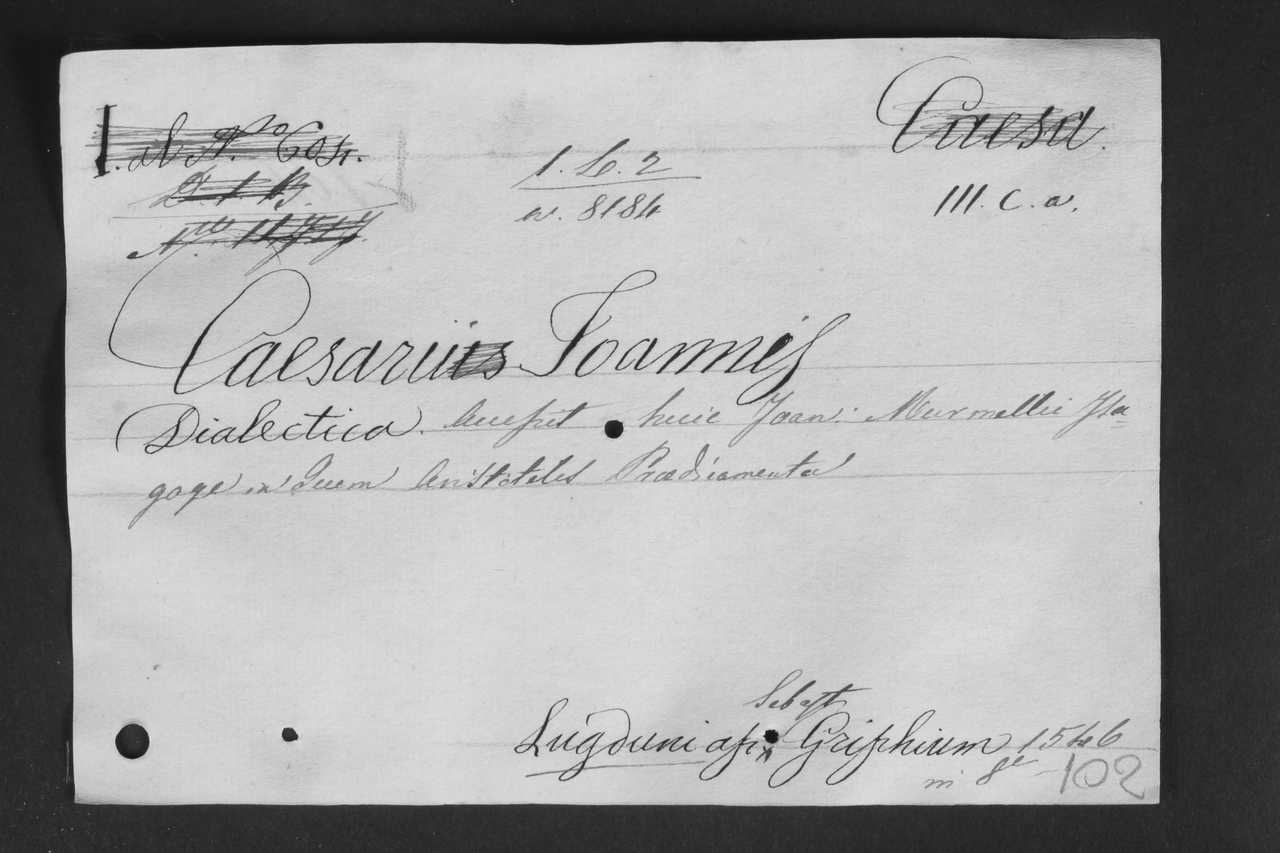 I. ab A.no Cosr.
D. 1. B.
N.ro
1. L. 2
w. 8184
Caesa.
III. C. a.
Caesarius Joannis
Dialectica. Accessit huic Joan: Murmellii Isa=
goge in Quem Aristoteles Praedicamenta
Lugduni ap. Sebast Griphium 1546
in 8º
102